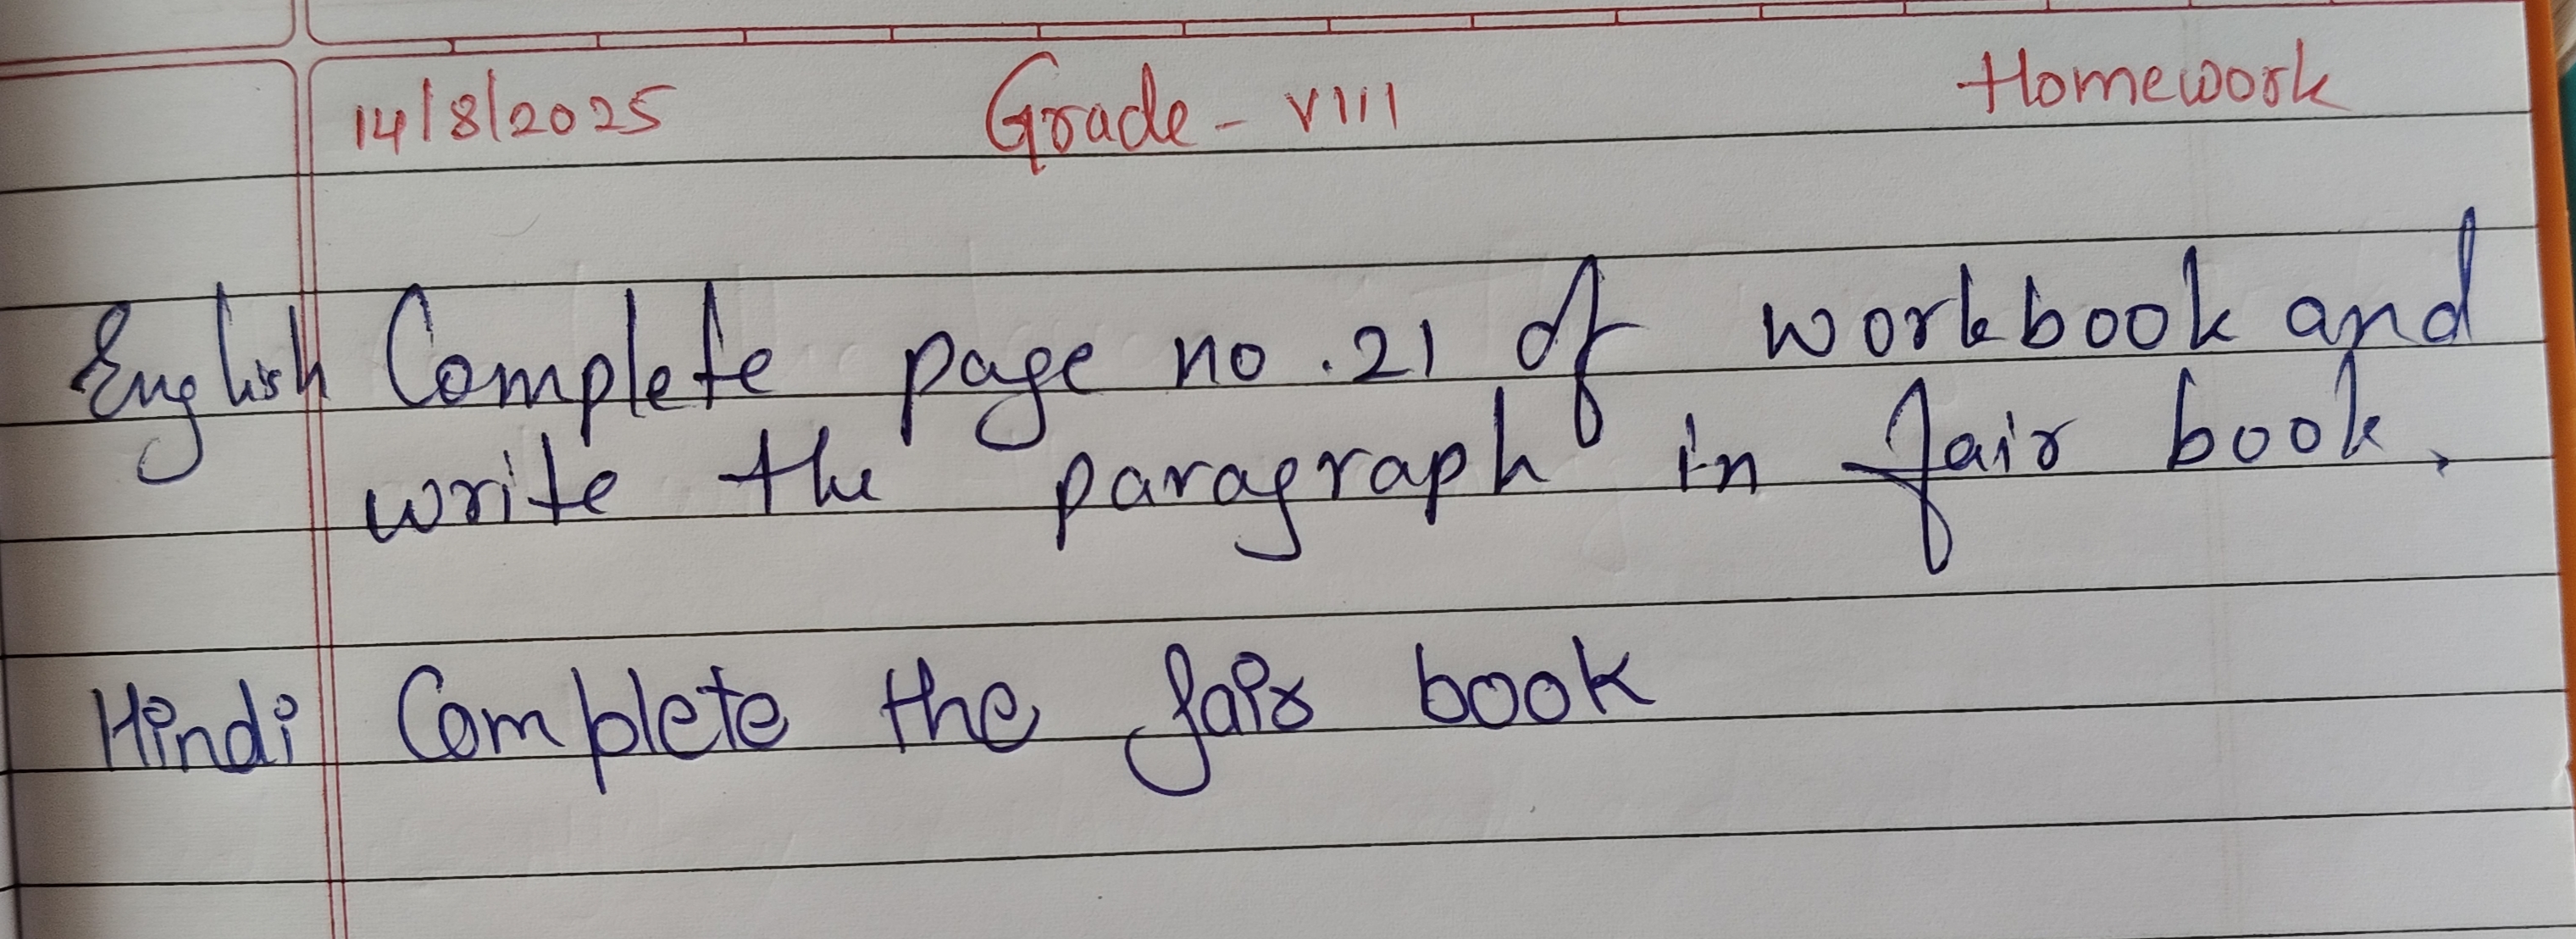 14/8/2025 Grade - VIII Homework
English Complete page no. 21 of workbook and
write the paragraph in fair book.
Hindi Complete the fair book